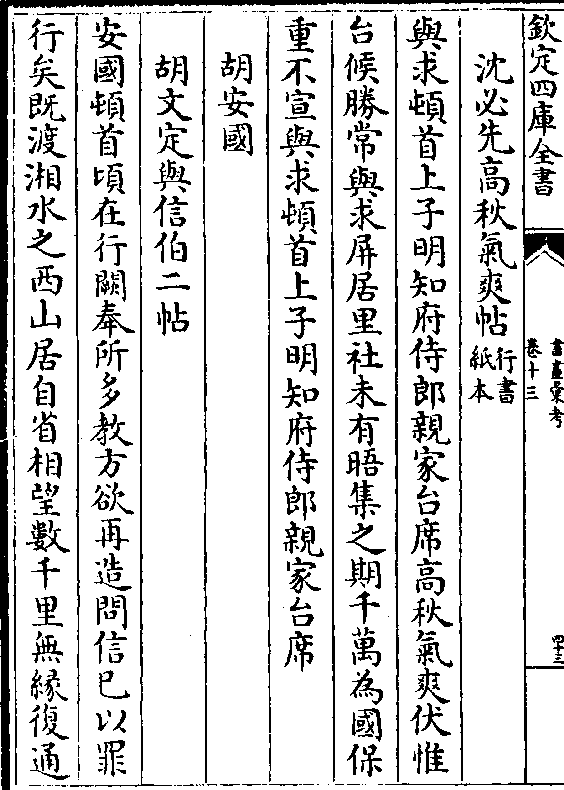 欽定四庫全書
書畫彙考
卷十三
四十三
沈必先高秋氣爽帖行書紙本
與求頓首上子明知府侍郎親家台席高秋氣爽伏惟
台候勝常與求屏居里社未有晤集之期千萬為國保
重不宣與求頓首上子明知府侍郎親家台席
胡安國
胡文定與信伯二帖
安國頓首頃在行闕奉所多教方欲再造問信已以罪
行矣既渡湘水之西山居自省相望數千里無緣復通